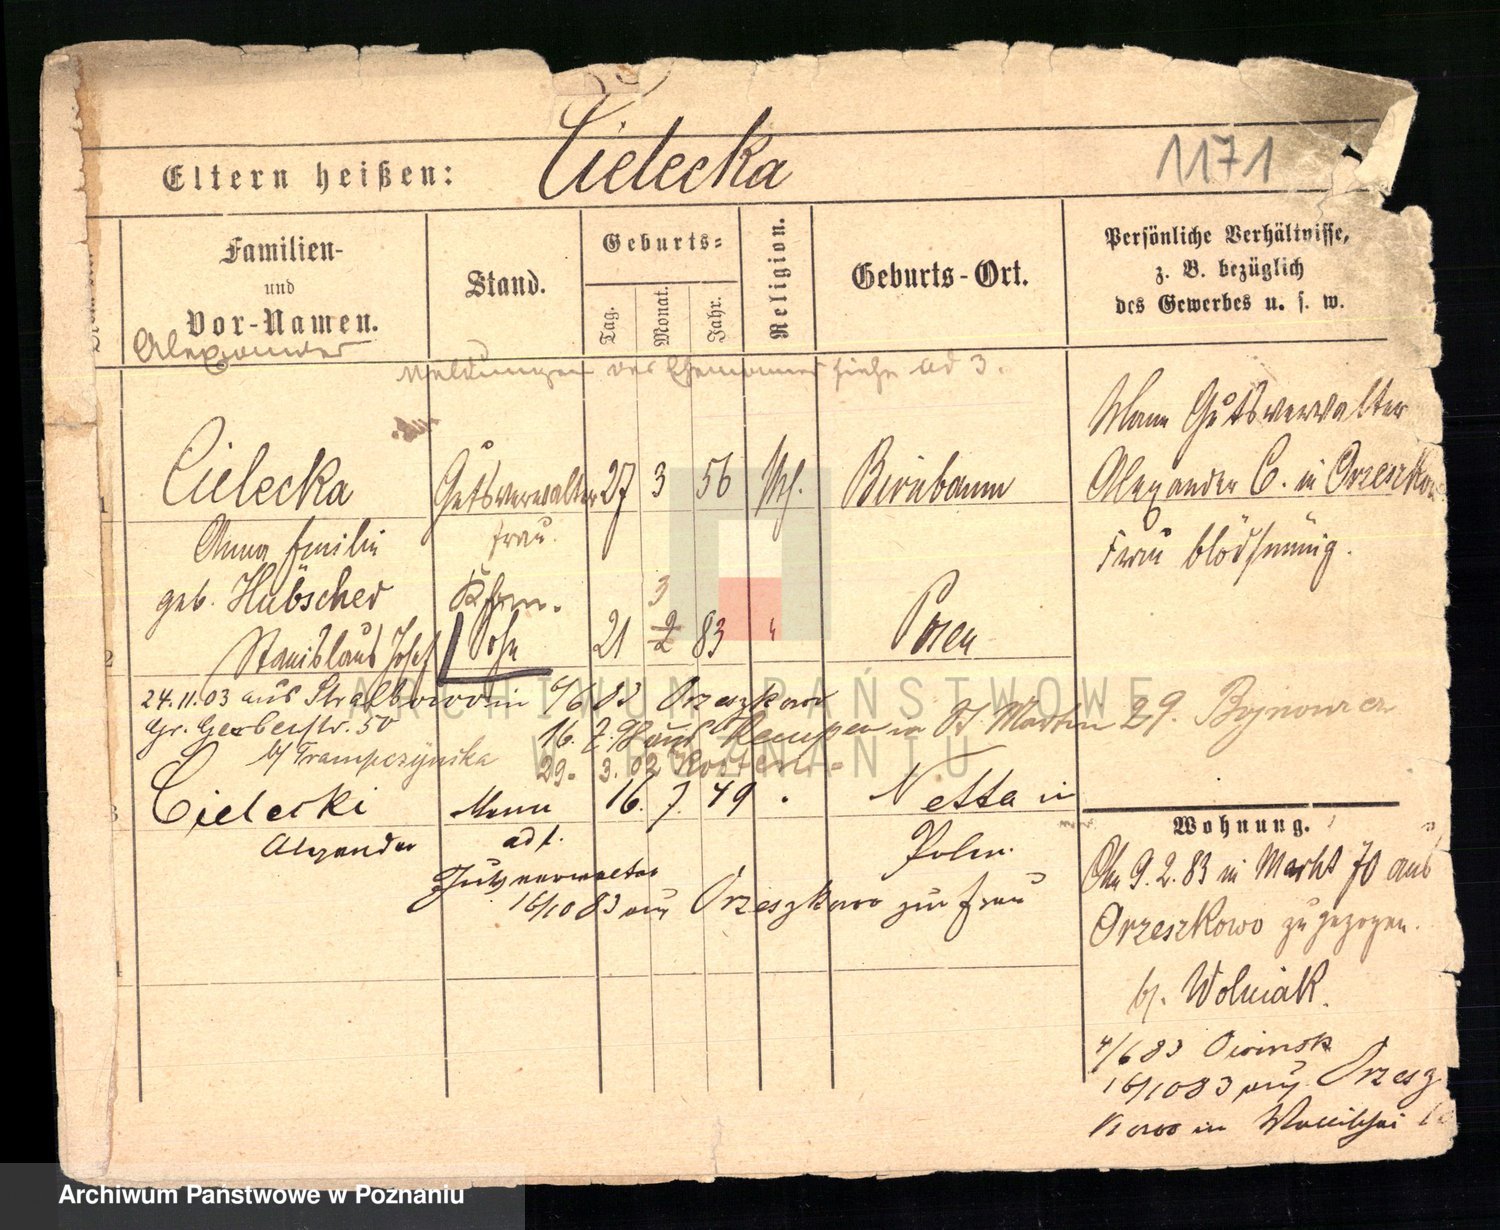 Eltern heißen: Cielecka
1171
Familien-
und
Vor-Namen.
Stand.
Geburts-
Tag.
Monat.
Jahr.
Religion.
Geburts-Ort.
Persönliche Verhältnisse,
z. B. bezüglich
des Gewerbes u. s. w.
Alexander
Meldungen des Ehemannes siehe ad 3.
Mann Gutsverwalter
1 Cielecka Gutsverwalter 27 3 56 Birnbaum Alexander C. in Orzeszkowo
Anna Emilie frau. Frau blödsinnig.
geb. Hübscher
3
2 Stanislaus Josef Sohn 21 2 83 " Posen
24.11.03 aus in 6/6 83 Orzeszkowo
Gr. Gerberstr. 50 16. 7. in St. Martin 29. Bojnowicz
b/ Trampczynska 29. 3. 02
3 Cielecki Mann 16. 7. 49 Netta in
Alexander adl. Polen.
Gutsverwalter
16/10 83 aus Orzeszkowo zur Frau
4
Wohnung.
Am 9. 2. 83 in Markt 70 aus
Orzeszkowo zugezogen.
bj. Wolniak.
4/6 83 Owinsk
16/10 83 aus Orzesz
kowo in Wallischei
ARCHIWUM PAŃSTWOWE
W POZNANIU
Archiwum Państwowe w Poznaniu